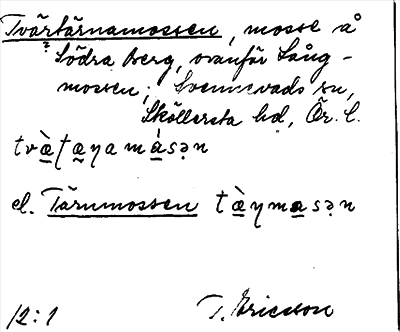 Tvärtärnamossen, mosse å
Södra Berg, ovanför Lång-
mossen; Svennevads sn,
Sköllersta hd, Ör. l.
tvὲʈæɳamásən
el. Tärnmossen tæ̀ɳmasən
12:1 T. Ericsson